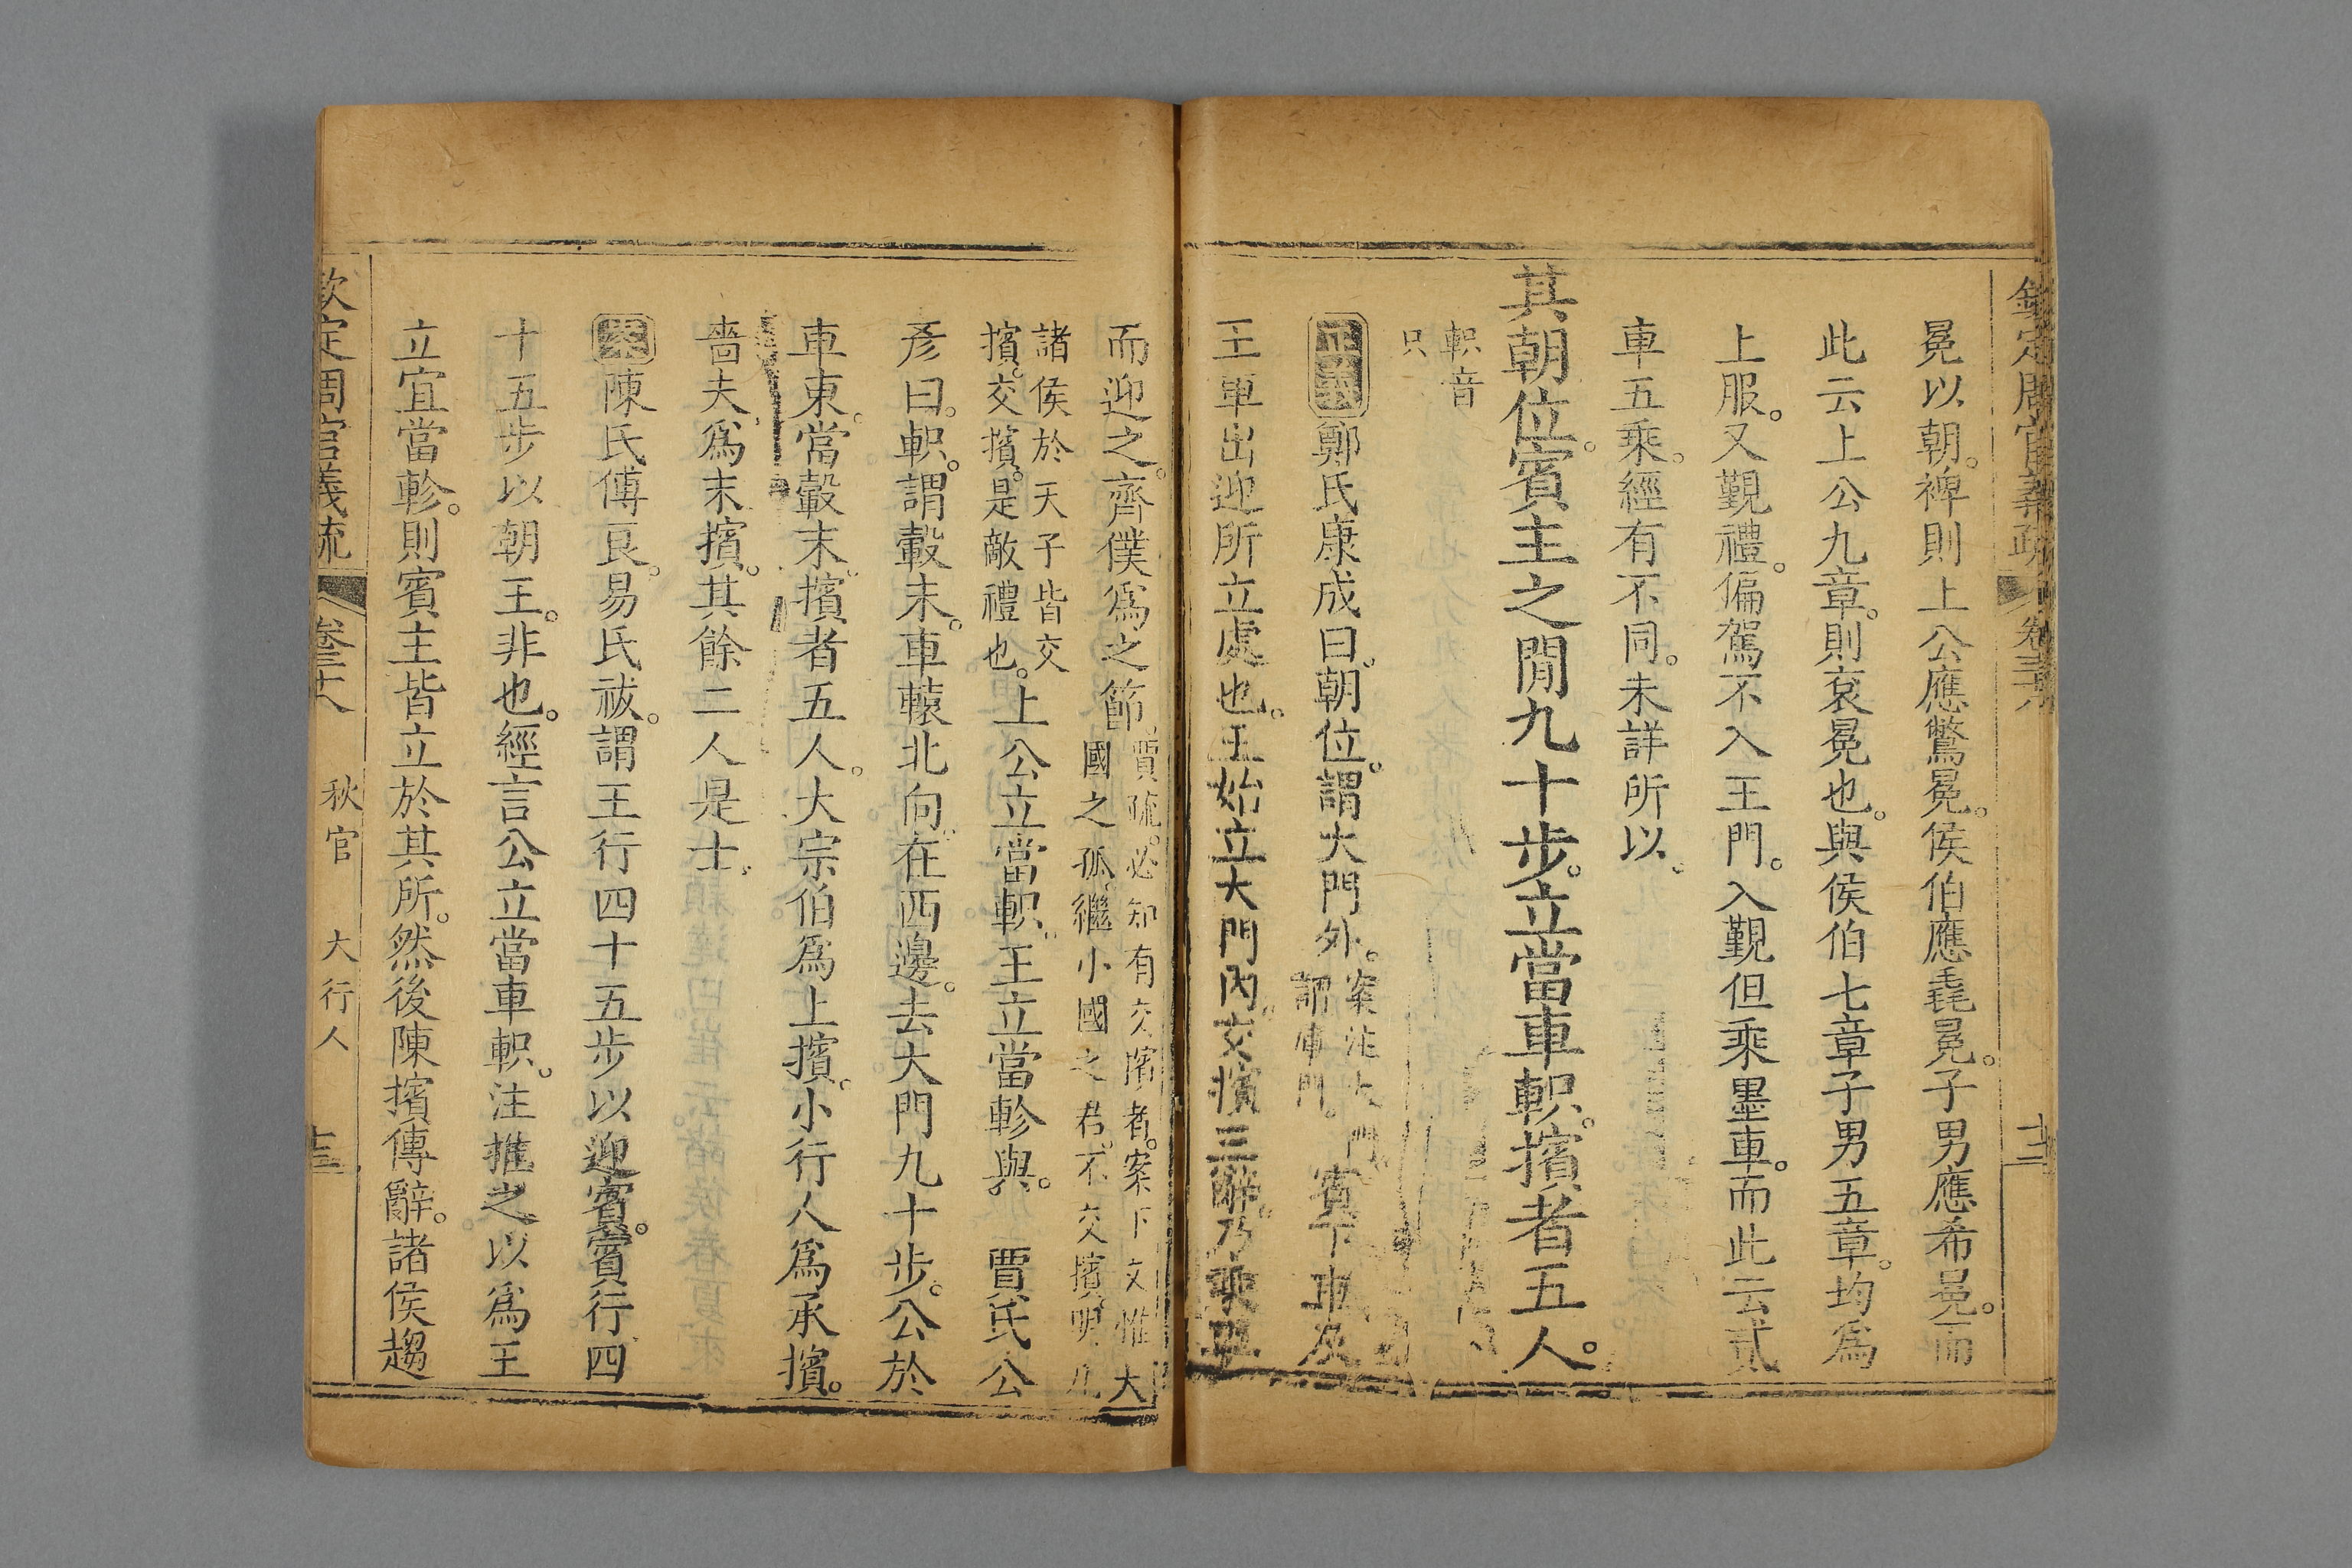 欽定周官義疏 卷三十八 十二
冕以朝。裨則上公應鷩冕。侯伯應毳冕。子男應希冕。而
此云上公九章。則袞冕也。與侯伯七章子男五章。均爲
上服。又覲禮。偏駕不入王門。入覲但乘墨車。而此云貳
車五乘。經有不同。未詳所以。
其朝位。賓主之閒九十步。立當車軹。擯者五人。
軹音
只
正義鄭氏康成曰。朝位。謂大門外。
案注大門。
謂庫門。
賓下車及
王車出迎所立處也。王始立大門內。交擯三辭。乃乘車
而迎之。齊僕爲之節。
賈疏。必知有交擯者。案下文惟大
國之孤。繼小國之君。不交擯。明
諸侯於天子皆交
擯。交擯。是敵禮也。
上公立當軹。王立當軫與。 賈氏公
彥曰。軹。謂轂末。車轅北向。在西邊。去大門九十步。公於
車東。當轂末。擯者五人。大宗伯爲上擯。小行人爲承擯。
嗇夫爲末擯。其餘二人是士。
陳氏傅良。易氏祓。謂王行四十五步以迎賓。賓行四
十五步以朝王。非也。經言公立當車軹。注推之以爲王
立宜當軫。則賓主皆立於其所。然後陳擯傳辭。諸侯趨
欽定周官義疏 卷三十八 秋官 大行人 十三